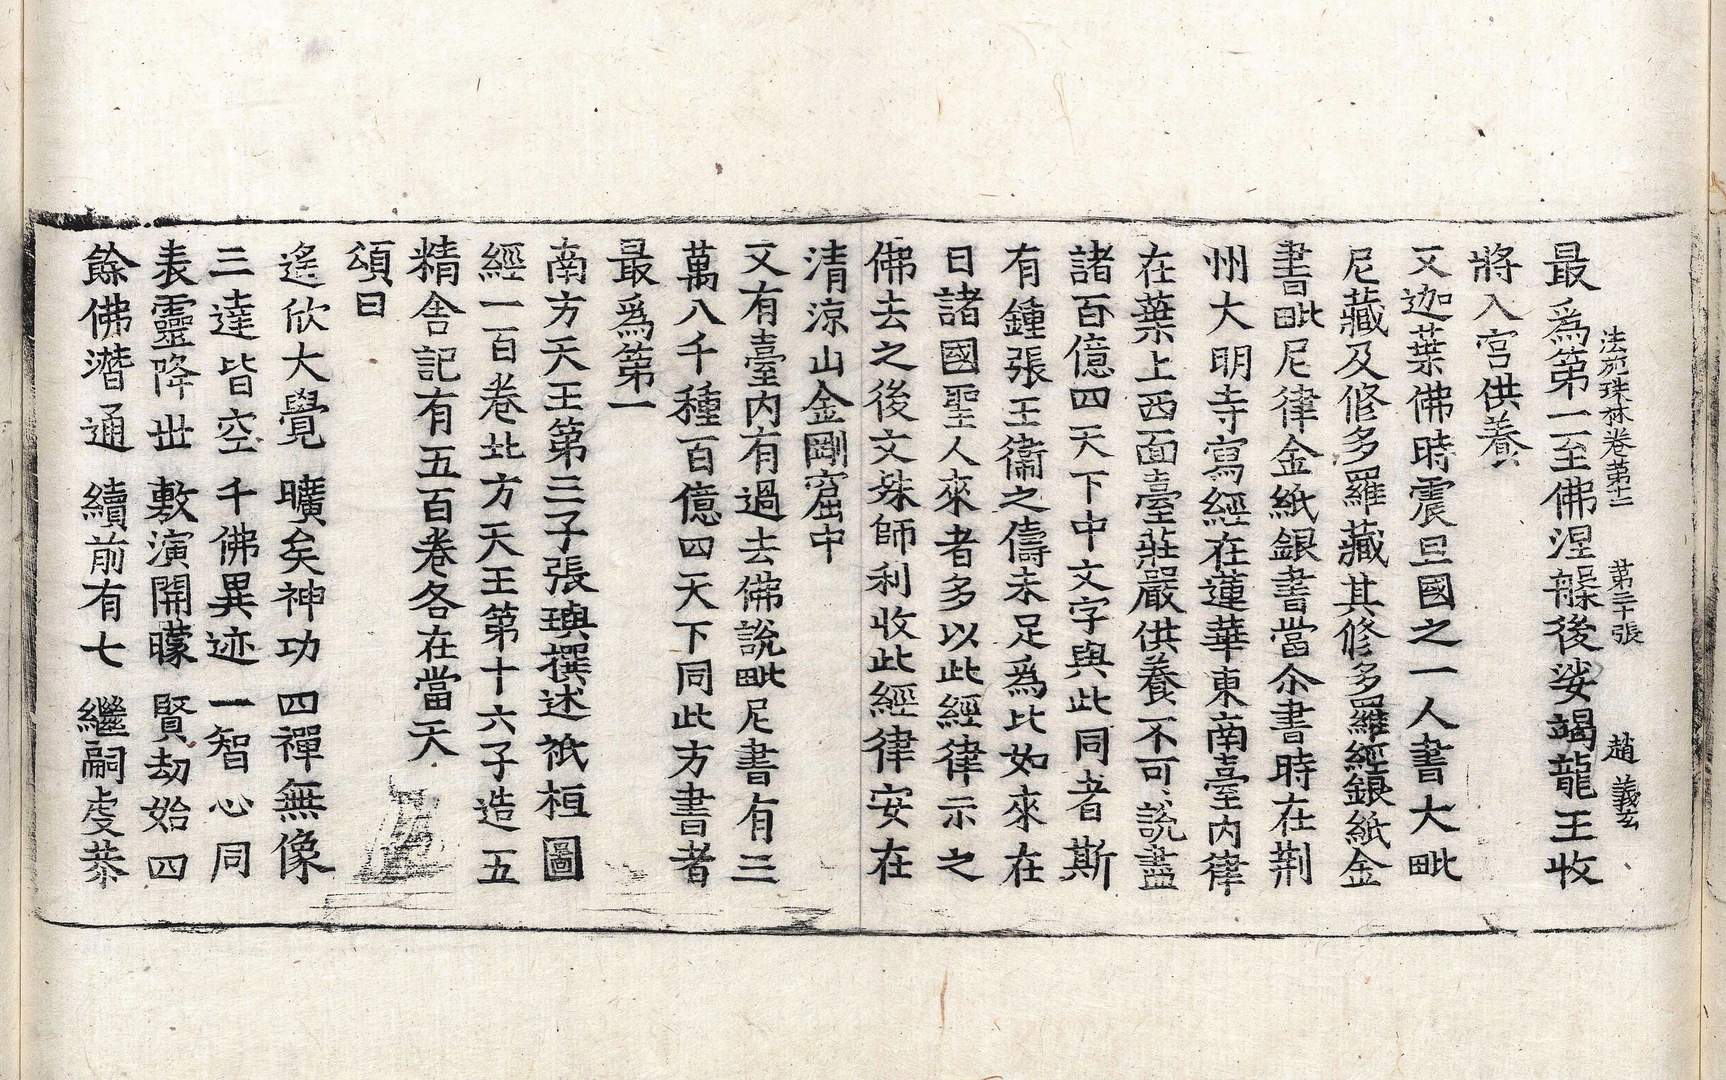 法苑珠林卷第十二 第三十張 趙 義玄
最爲第一至佛涅槃後娑竭龍王收
將入宮供養
又迦葉佛時震旦國之一人書大毗
尼藏及修多羅藏其修多羅經銀紙金
書毗尼律金紙銀書當尒書時在荆
州大明寺寫經在蓮華東南臺內律
在葉上西面臺莊嚴供養不可說盡
諸百億四天下中文字與此同者斯
有鍾張王衞之儔未足爲比如來在
日諸國聖人來者多以此經律示之
佛去之後文殊師利收此經律安在
清涼山金剛窟中
又有臺內有過去佛說毗尼書有三
萬八千種百億四天下同此方書者
最爲第一
南方天王第三子張璵撰述祇桓圖
經一百卷北方天王第十六子造五
精舍記有五百卷各在當天
頌曰
遙欣大覺 曠矣神功 四禪無像
三達皆空 千佛異迹 一智心同
表靈降世 敷演開矇 賢劫始四
餘佛潛通 續前有七 繼嗣虔恭